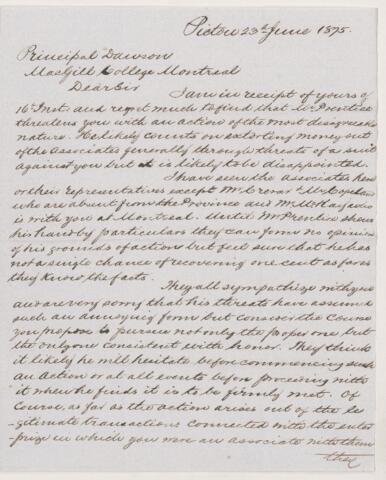 Pictou 23d June 1875.
Principal Dawson
MacGill College Montreal
Dear Sir
I am in receipt of yours of
16th Inst. and regret much to find that Mr Prentice
threatens you with an action of the most disagreeable
nature. He likely counts on extorting money out
of the associates generally through threats of a suit
against you but is likely to be disappointed.
I have seen the associates here
or their representatives except Mr Crerar & Mr
who are absent from the Province and Mr McKay who
is with you at Montreal. Until Mr Prentice shews
his hand by particulars they can form no opinion
of his grounds of action but feel sure that he has
not a single chance of recovering one cent as far as
they know the facts.
They all sympathize with you
and are very sorry that his threats have assumed
such an annoying form but consider the course
you propose to pursue not only the proper one but
the only one consistent with honor. They think
it likely he will hesitate before commencing such
an action or at all events before proceeding with
it when he finds it is to be firmly met. Of
course, as far as the action arises out of the le
gitimate transactions connected with the enter
prize in which you were an associate with them
they